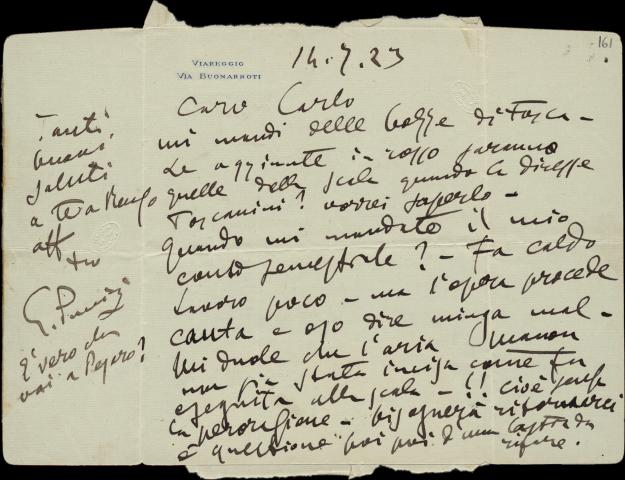 161
VIAREGGIO
VIA BUONARROTI
14.7.23
Caro Carlo
mi mandi delle bozze di Tosca -
Le aggiunte in rosso saranno
quelle della Scala quando la diresse
Toscanini? vorrei saperlo -
quando mi mandate il mio
conto semestrale? - Fa caldo
Lavoro poco - ma l'opera procede
canta e oso dire minga mal -
Mi duole che l'aria Manon
non sia stata incisa come fu
eseguita alla Scala - cioè senza
la perorazione - bisognerà ritornarci
è questione poi di una lastra da
rifare.
Tanti
buoni
saluti
a te a Renzo
aff
tuo
G. Puccini
È vero che
vai a Pesaro?